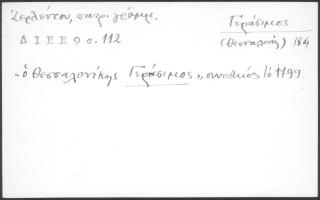 Ζερλέντου, πατρ. γράμμ.
ΔΙΕΕ 9 σ. 112
Γεράσιμος
(Θεσσαλονίκης)
"ὁ Θεσσαλονίκης Γεράσιμος", συνοδικός
1799